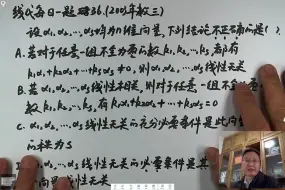 线代每日一题 036.(2003年数三)
设α₁,α₂,…αs均为n维向量,下列结论不正确的是( )
A. 若对于任意一组不全为零的数k₁,k₂,…ks,都有
k₁α₁+k₂α₂+…+ksαs≠0,则α₁,α₂,…αs线性无关
B. 若α₁,α₂,…αs线性相关,则对于任意一组不全为
数k₁,k₂,…ks,有k₁α₁+k₂α₂+…+ksαs=0
C. α₁,α₂,…αs线性无关的充分必要条件是此向
的秩为S
α₁,α₂,…αs线性无关的必要条件是其
线性无关